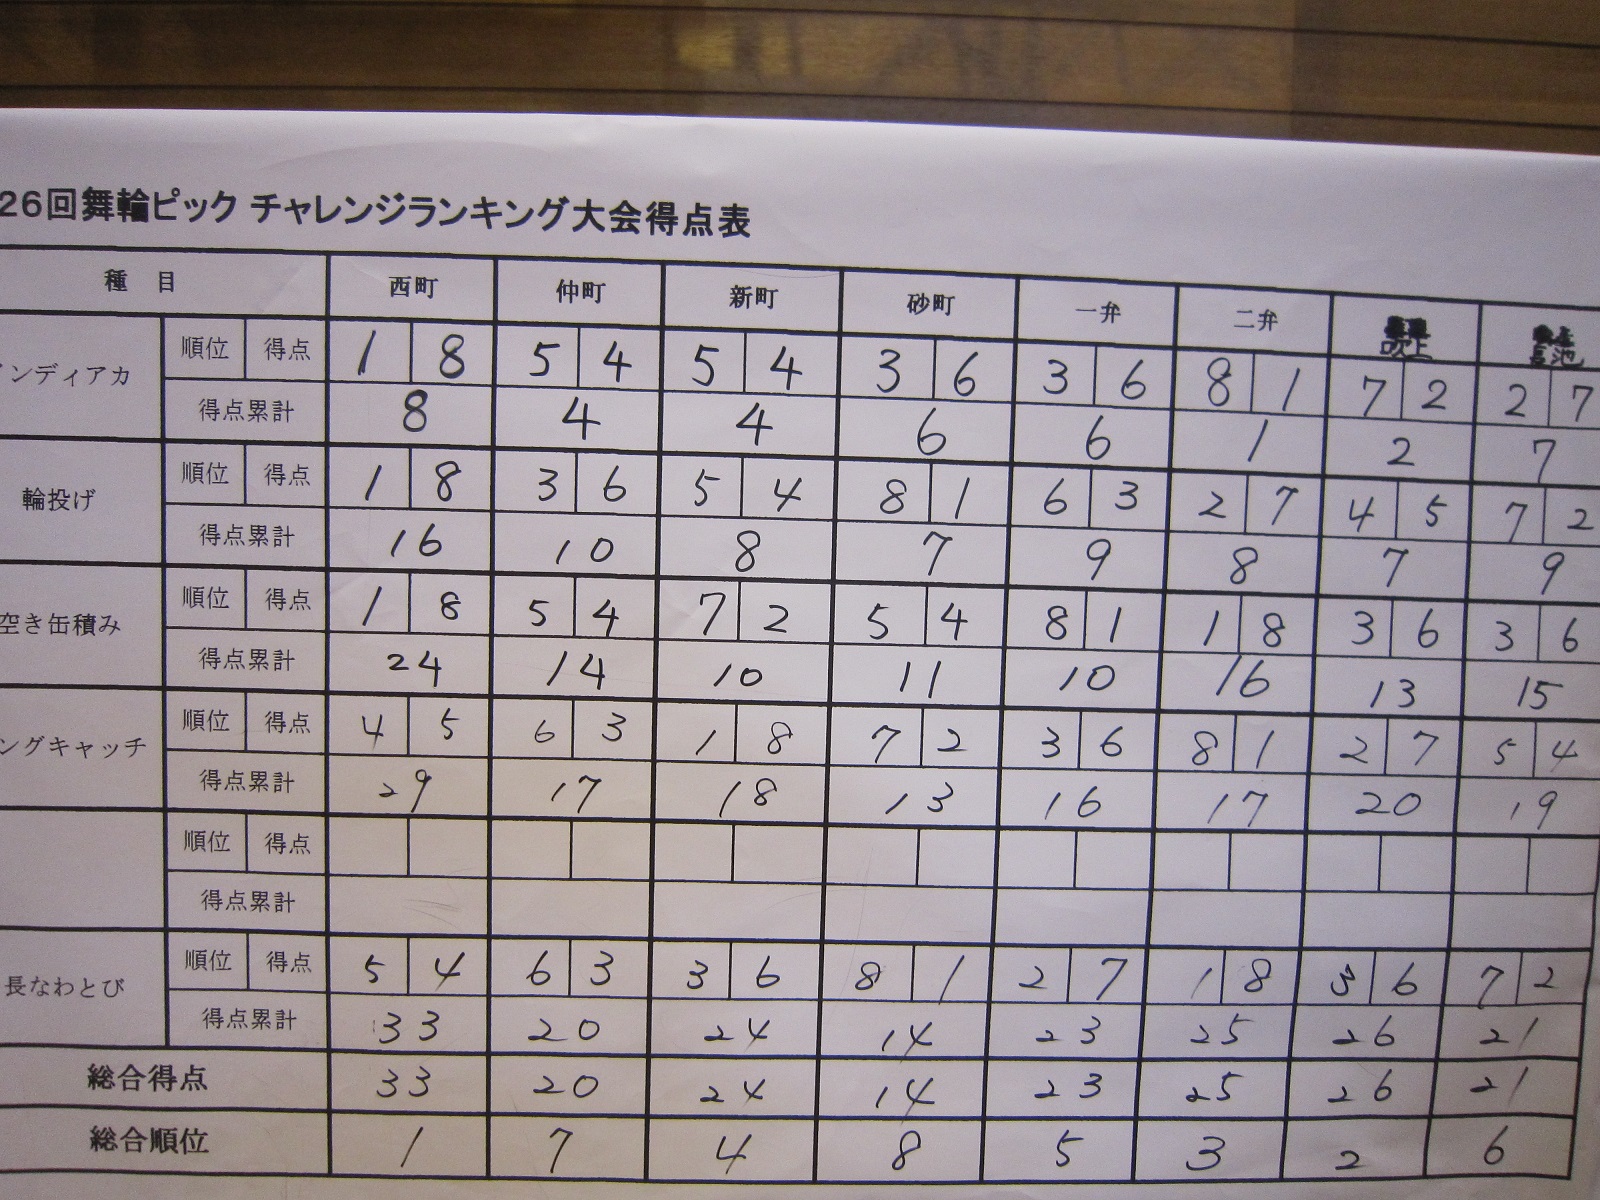 26回舞輪ピック チャレンジランキング大会得点表
種 目 西町 仲町 新町 砂町 一弁 二弁 吹上 菖池
ンディアカ 順位 得点 1 8 5 4 5 4 3 6 3 6 8 1 7 2 2 7
得点累計 8 4 4 6 6 1 2 7
輪投げ 順位 得点 1 8 3 6 5 4 8 1 6 3 2 7 4 5 7 2
得点累計 16 10 8 7 9 8 7 9
空き缶積み 順位 得点 1 8 5 4 7 2 5 4 8 1 1 8 3 6 3 6
得点累計 24 14 10 11 10 16 13 15
ングキャッチ 順位 得点 4 5 6 3 1 8 7 2 3 6 8 1 2 7 5 4
得点累計 29 17 18 13 16 17 20 19
順位 得点
得点累計
長なわとび 順位 得点 5 4 6 3 3 6 8 1 2 7 1 8 3 6 7 2
得点累計 33 20 24 14 23 25 26 21
総合得点 33 20 24 14 23 25 26 21
総合順位 1 7 4 8 5 3 2 6